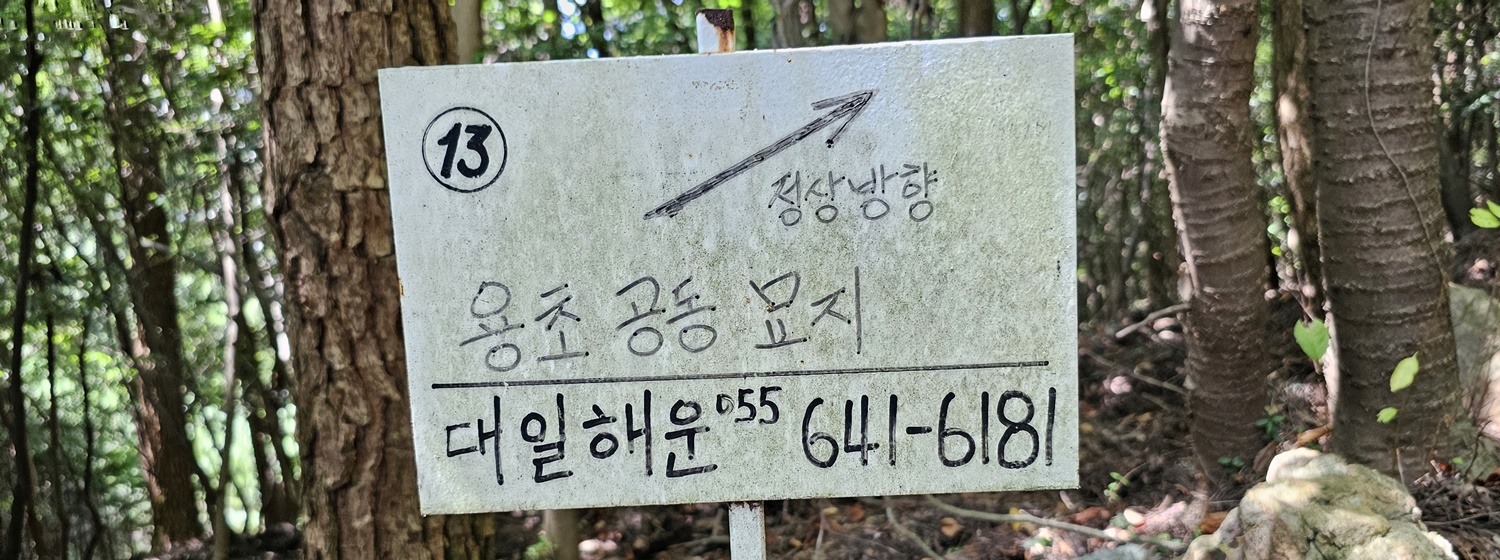 ⑬
정상방향
용초 공동 묘지
대일해운 055 641-6181